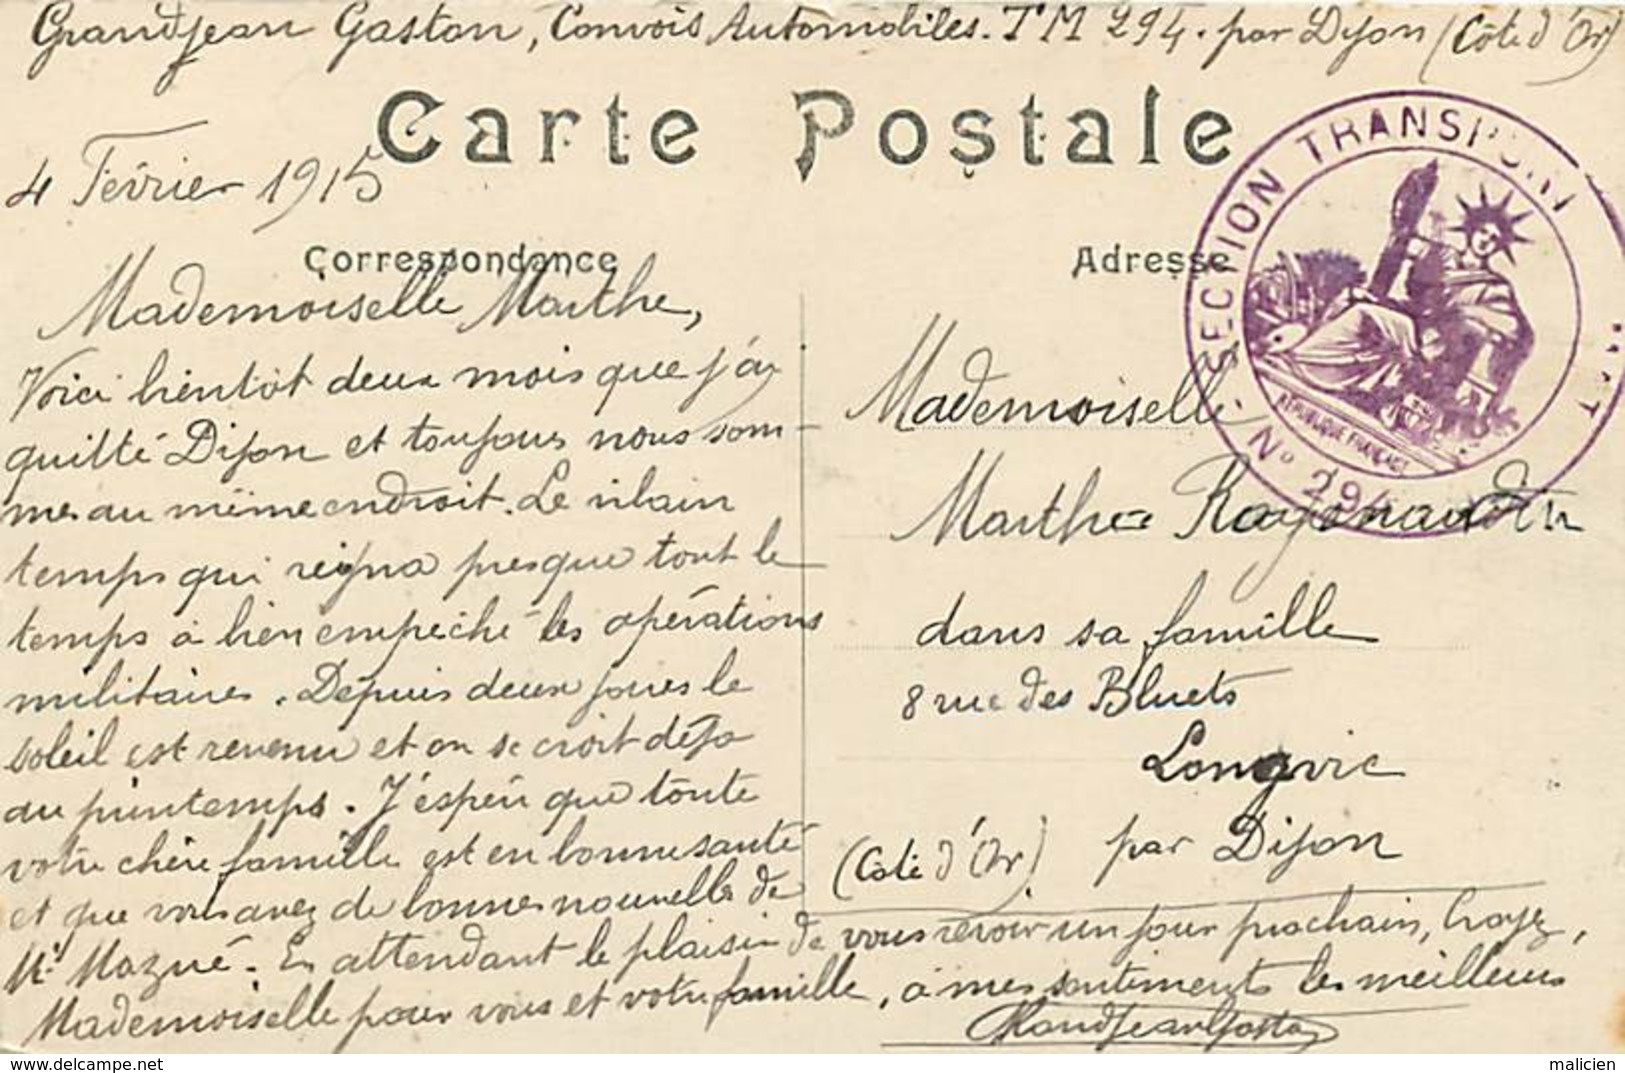 Grandjean Gaston, Convois Automobiles. TM 294. par Dijon (Côte d'Or)
Carte Postale
4 Février 1915
Correspondance
Mademoiselle Marthe,
Voici bientôt deux mois que j'ay
quitté Dijon et toujours nous som-
mes au même endroit. Le vilain
temps qui régna presque tout le
temps a bien empêché les opérations
militaires. Depuis deux jours le
soleil est revenu et on se croit déjà
au printemps. J'espère que toute
votre chère famille est en bonne santé
et que vous avez de bonnes nouvelles de
Mr Mazué. En attendant le plaisir de vous revoir un jour prochain, Croyez,
Mademoiselle pour vous et votre famille, à mes sentiments les meilleurs
GrandJean Gaston
Adresse
Mademoiselle
Marthe
dans sa famille
8 rue des Bluets
Longvic
par Dijon
(Côte d'Or)
SECTION TRANSPORT
RÉPUBLIQUE FRANÇAISE
N° 294
delcampe.net
malicien